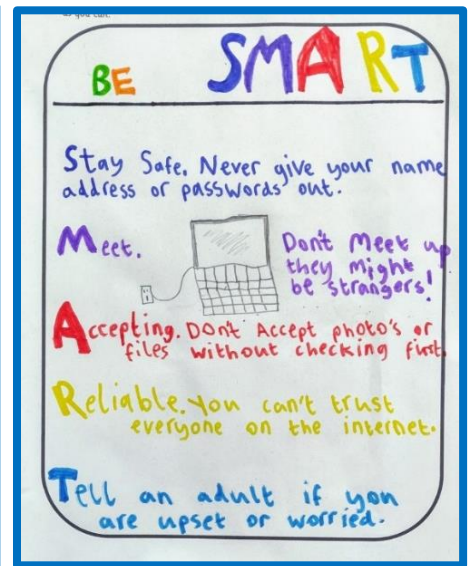 as you can.
BE SMART
Stay Safe. Never give your name
address or passwords out.
Meet.
Don't Meet up
they might
be strangers!
Accepting. Don't Accept photo's or
files without checking first.
Reliable. You can't trust
everyone on the internet.
Tell an adult if you
are upset or worried.